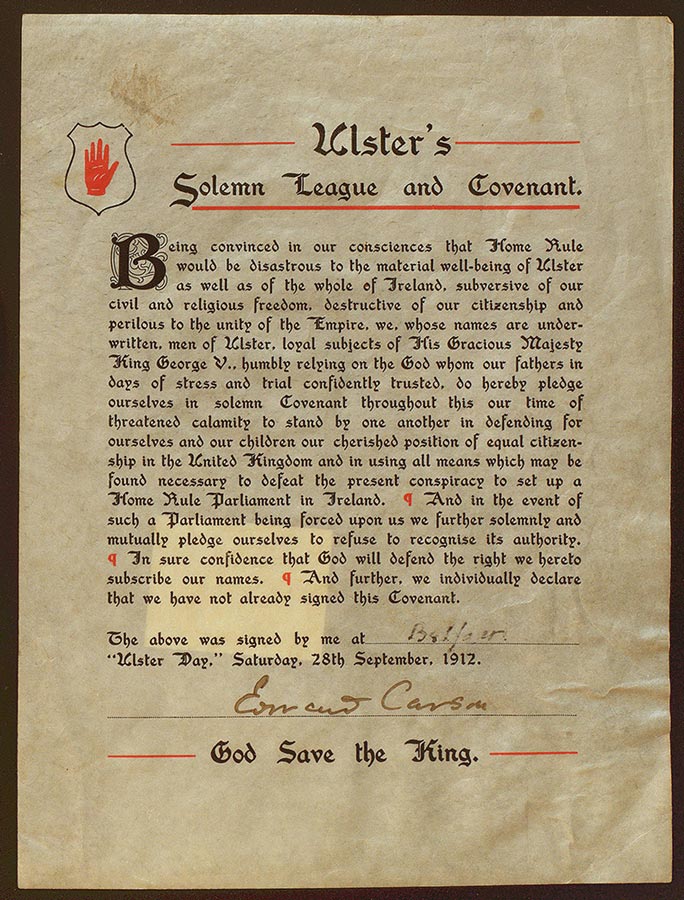 Ulster's
Solemn League and Covenant.
Being convinced in our consciences that Home Rule
would be disastrous to the material well-being of Ulster
as well as of the whole of Ireland, subversive of our
civil and religious freedom, destructive of our citizenship and
perilous to the unity of the Empire, we, whose names are under-
written, men of Ulster, loyal subjects of His Gracious Majesty
King George V., humbly relying on the God whom our fathers in
days of stress and trial confidently trusted, do hereby pledge
ourselves in solemn Covenant throughout this our time of
threatened calamity to stand by one another in defending for
ourselves and our children our cherished position of equal citizen-
ship in the United Kingdom and in using all means which may be
found necessary to defeat the present conspiracy to set up a
Home Rule Parliament in Ireland. ¶ And in the event of
such a Parliament being forced upon us we further solemnly and
mutually pledge ourselves to refuse to recognise its authority.
¶ In sure confidence that God will defend the right we hereto
subscribe our names. ¶ And further, we individually declare
that we have not already signed this Covenant.
The above was signed by me at Belfast
"Ulster Day," Saturday, 28th September, 1912.
Edward Carson
God Save the King.